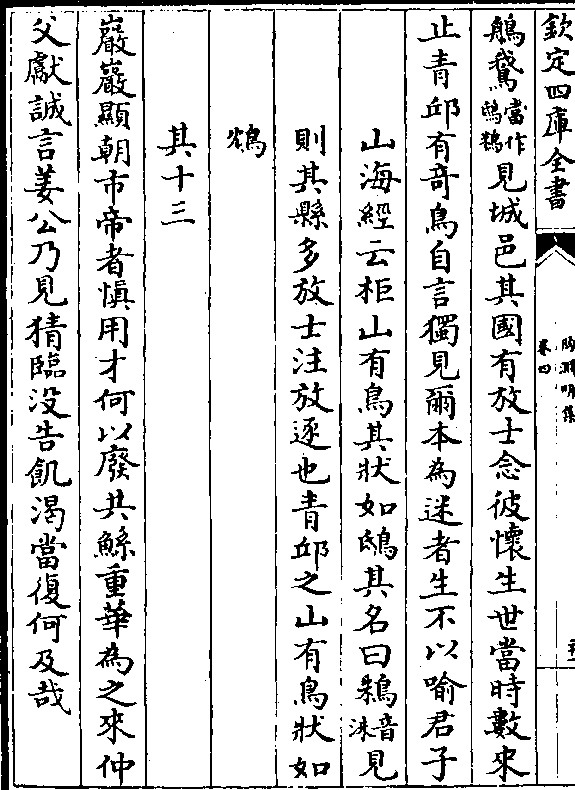 欽定四庫全書
陶淵明集
卷四
鵃鵝當作鴟鴸見城邑其國有放士念彼懷生世當時數來
止青邱有奇鳥自言獨見爾本為迷者生不以喻君子
山海經云柜山有鳥其狀如鴟其名曰鴸音洙見
則其縣多放士注放逐也青邱之山有鳥狀如
鴆
其十三
巖巖顯朝市帝者慎用才何以廢共鯀重華為之來仲
父獻誠言姜公乃見猜臨没告飢渴當復何及哉